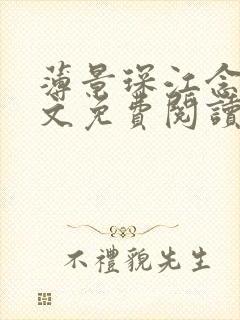 薄景琛江念
文免費閱讀
不禮貌先生